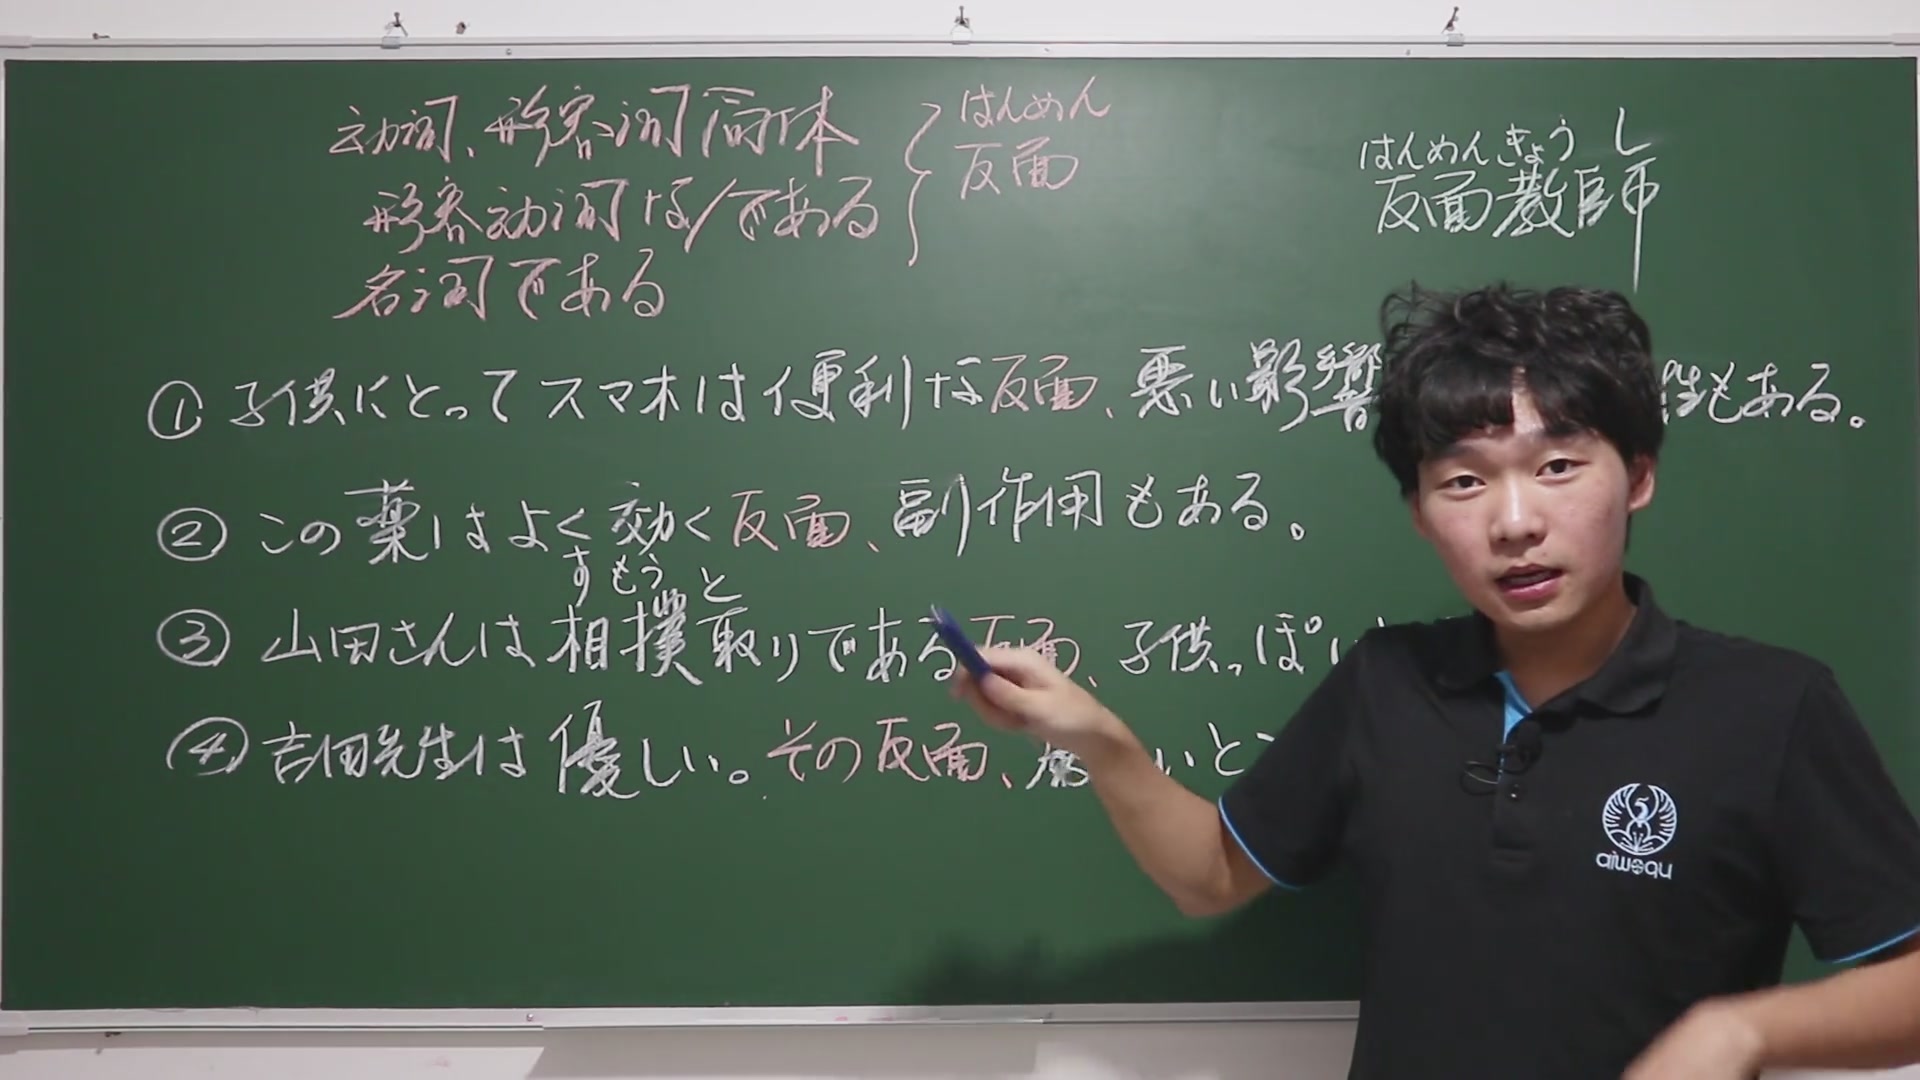 动词、形容词简体
はんめん
反面
形容动词な/である
名词である
はんめんきょうし
反面教師
① 子供にとってスマホは便利な反面、悪い影響 性もある。
② この薬はよく効く反面、副作用もある。
すもうと
③ 山田さんは相撲取りである反面、子供っぽい
④ 吉田先生は優しい。その反面、厳しいとこ
aiwoqu